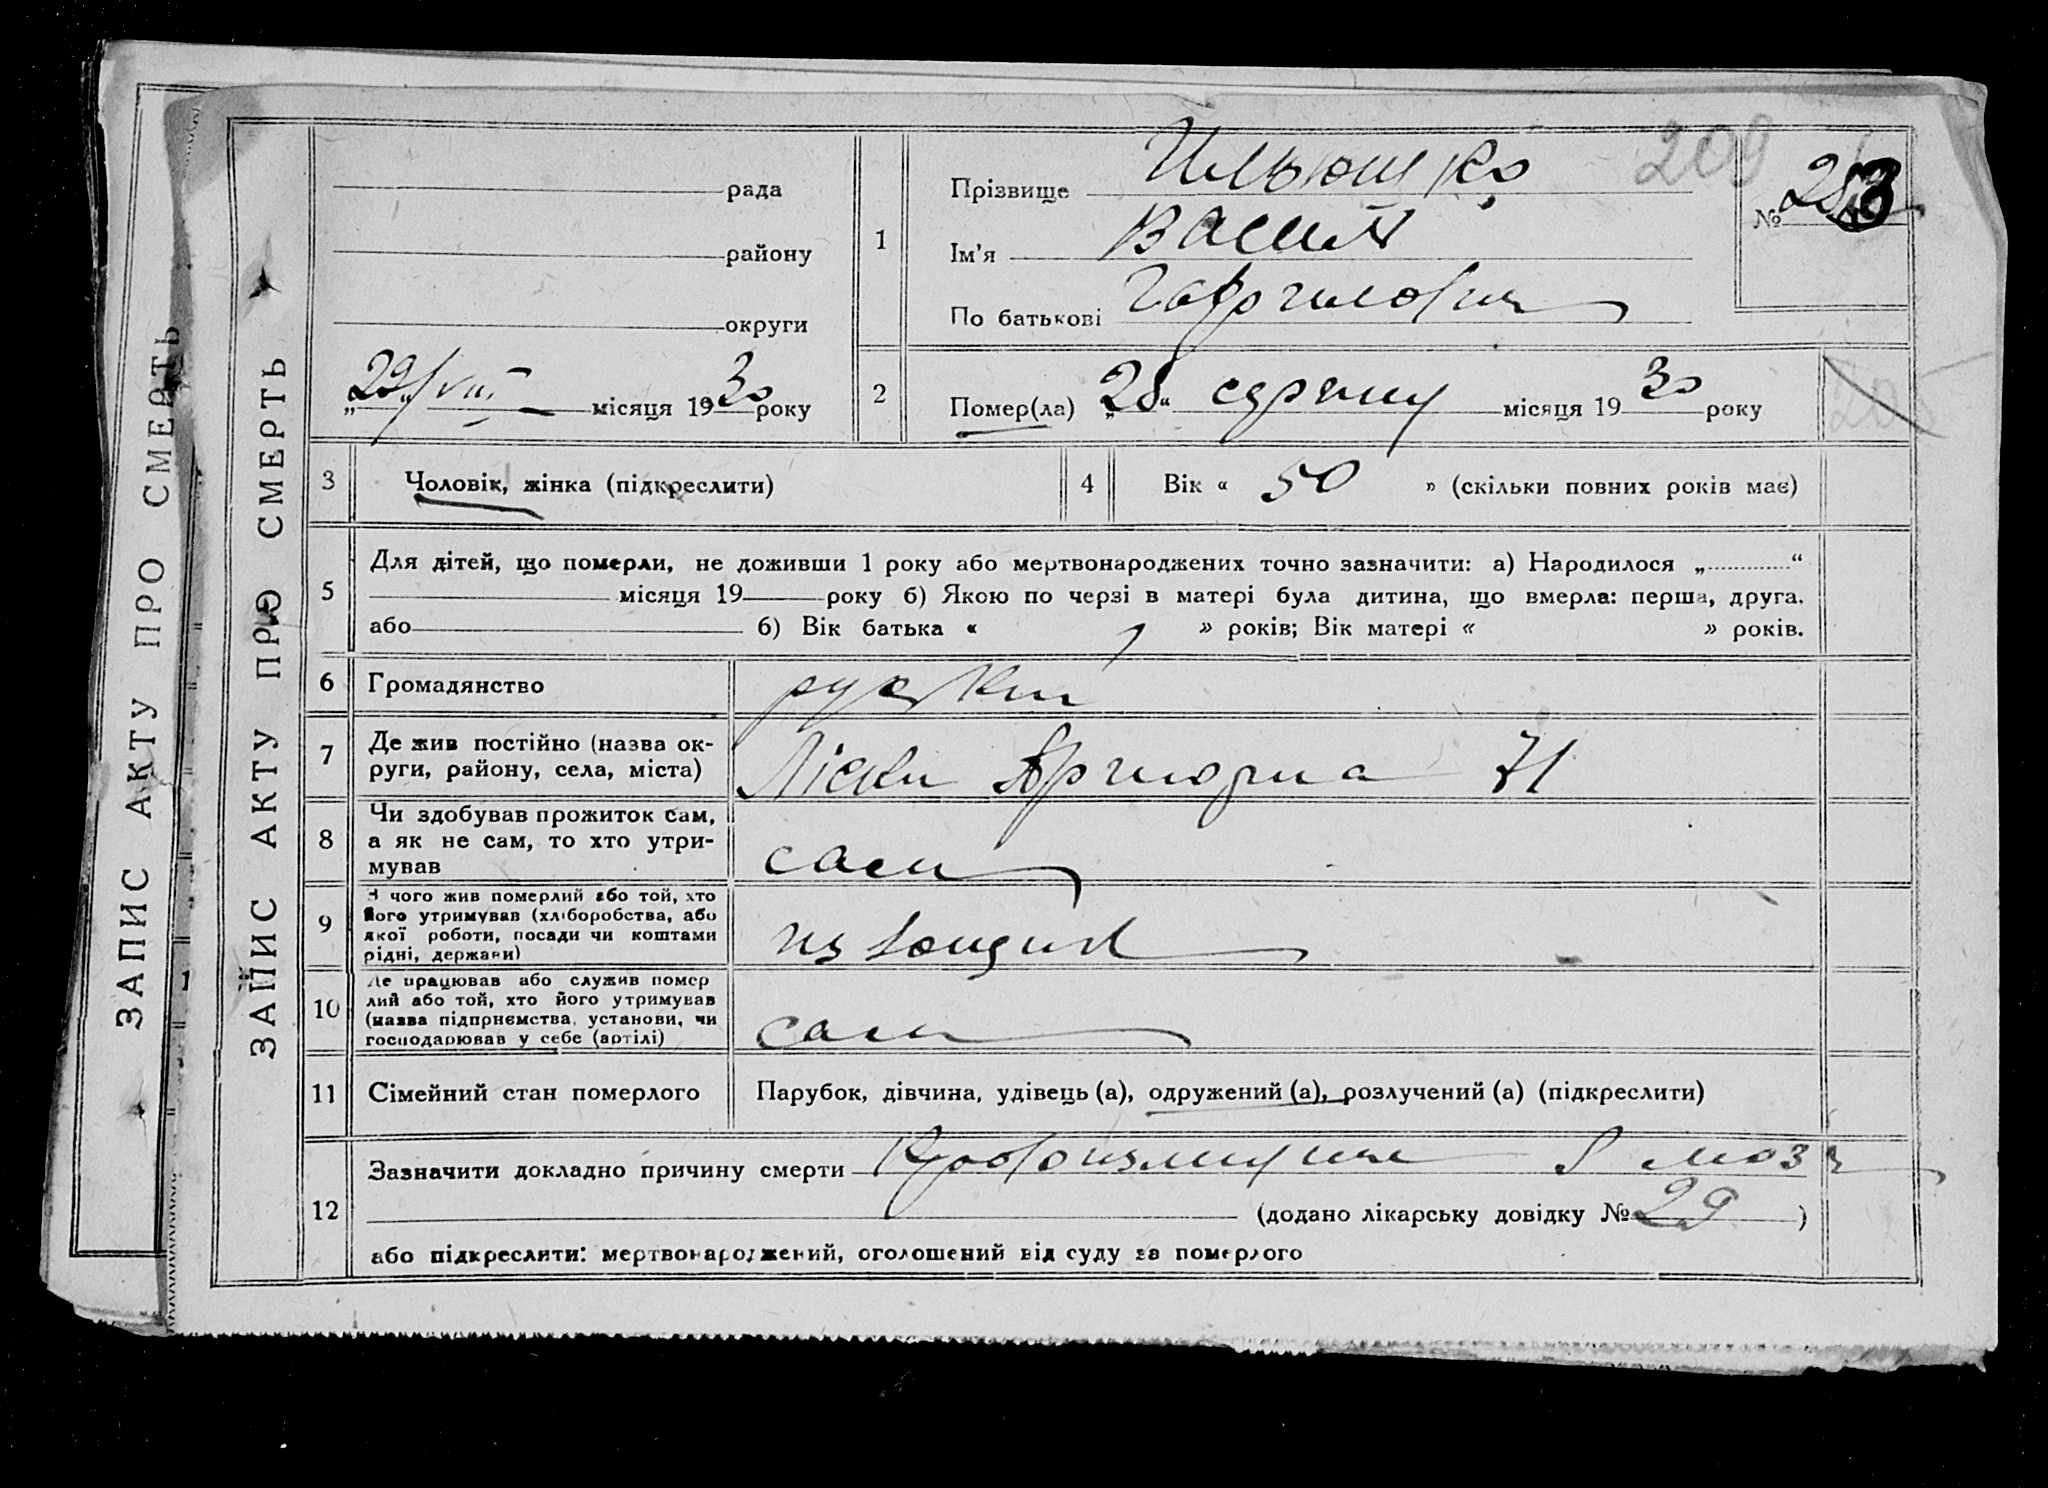 ЗАПИС АКТУ ПРО СМЕРТЬ
ЗАПИС АКТУ ПРО СМЕРТЬ
рада
району
округи
„29/VIII місяця 1930 року
1
Прізвище Ильюшко
Ім'я Васил
По батькові Гаврилович
209
№
2
Помер(ла) „28“ серпню місяця 1930 року
205
3
Чоловік, жінка (підкреслити)
4
Вік « 50 » (скільки повних років має)
5
Для дітей, що померли, не доживши 1 року або мертвонароджених точно зазначити: а) Народилося „..............“
місяця 19 року б) Якою по черзі в матері була дитина, що вмерла: перша, друга.
або б) Вік батька « » років; Вік матері « » років.
6
Громадянство
руский
7
Де жив постійно (назва ок-
руги, району, села, міста)
Ліски 71
8
Чи здобував прожиток сам,
а як не сам, то хто утри-
мував
сам
9
З чого жив померлий або той, хто
його утримував (хліборобства, або
якої роботи, посади чи коштами
рідні, держави)
извощик
10
Де працював або служив помер
лий або той, хто його утримував
(назва підприємства, установи, чи
господарював у себе (артілі)
сам
11
Сімейний стан померлого
Парубок, дівчина, удівець (а), одружений (а), розлучений (а) (підкреслити)
12
Зазначити докладно причину смерти Кровоизлияние в мозг
(додано лікарську довідку № 29 )
або підкреслити: мертвонароджений, оголошений від суду за померлого